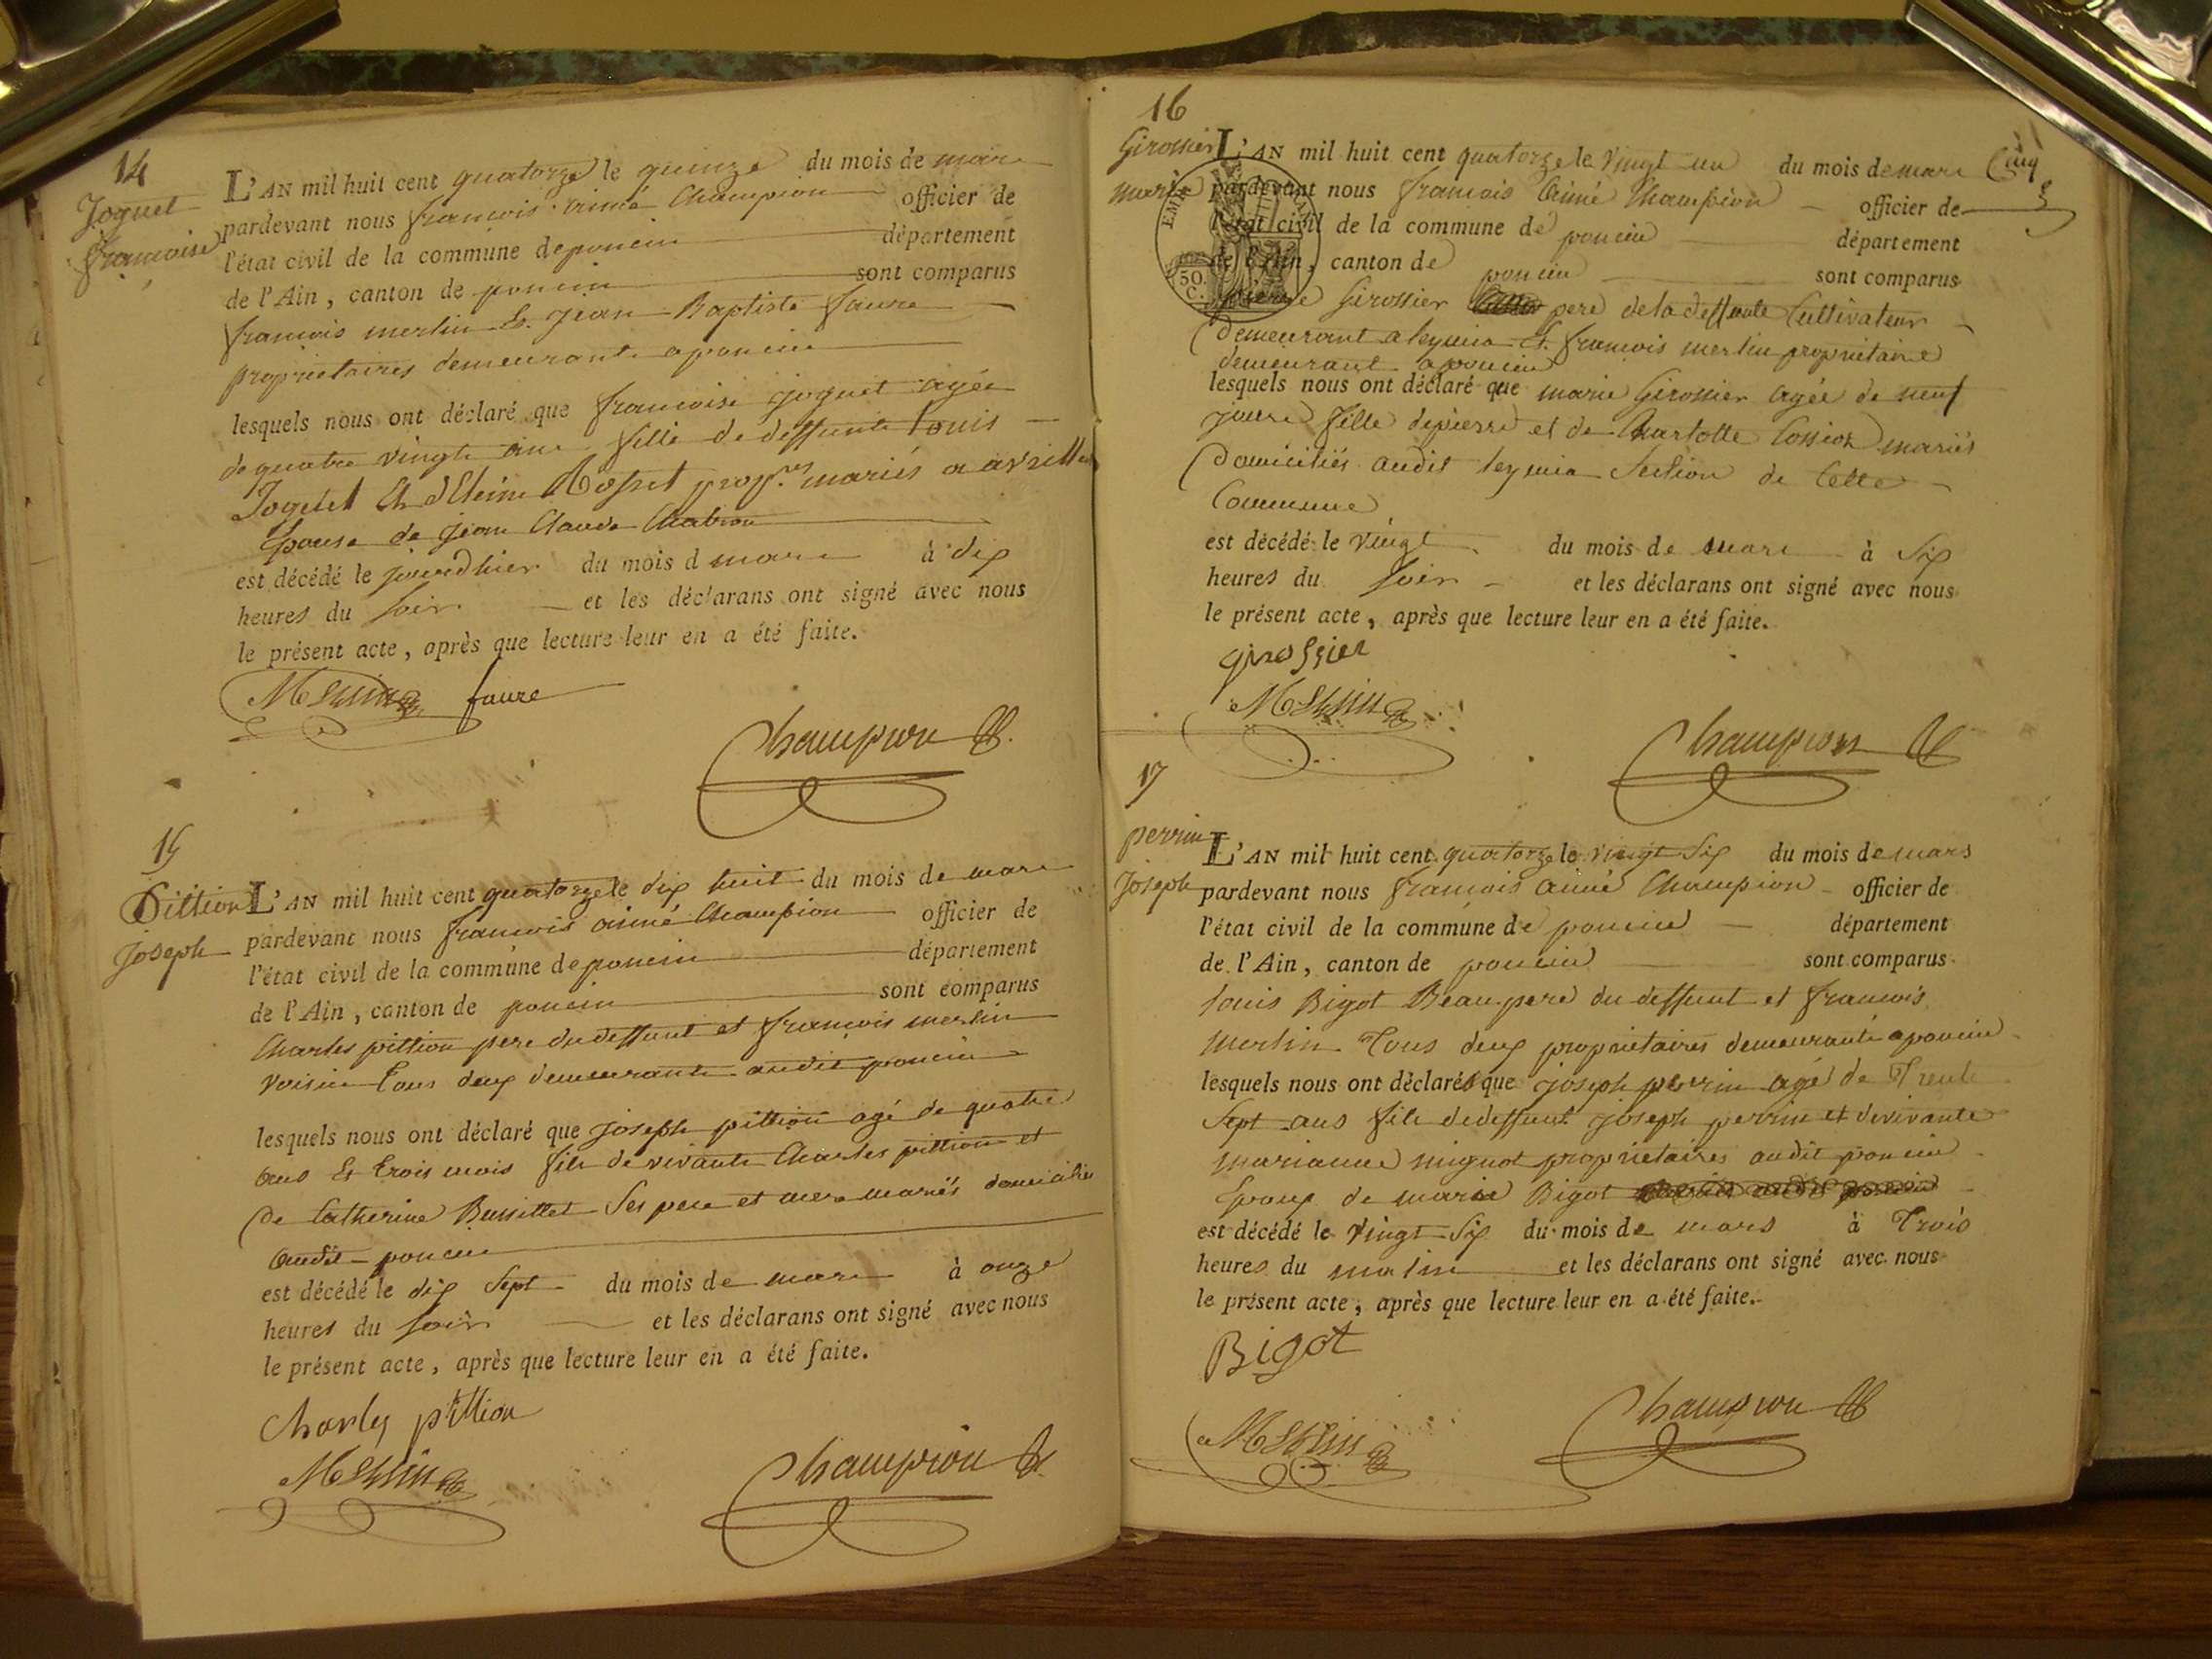 14
Joguet
françoise
L'AN mil huit cent quatorze le quinze du mois de mars
pardevant nous françois aimé Champion officier de
l'état civil de la commune de poncin département
de l'Ain, canton de poncin sont comparus
françois merlin Et jean Baptiste faure
propriétaires demeurants a poncin
lesquels nous ont déclaré que françoise joguet agée
de quatre vingt ans fille de deffunts Louis
Joguet Et d'Eleine Rosset prop.res mariés a
Epouse de jean Claude Chabrou
est décédé le jourdhier du mois d mars à dix
heures du soir et les déclarans ont signé avec nous
le présent acte, après que lecture leur en a été faite.
Merlin faure
Champion
15
Pittion
joseph
L'AN mil huit cent quatorze le dix huit du mois de mars
pardevant nous françois aimé Champion officier de
l'état civil de la commune de poncin département
de l'Ain, canton de poncin sont comparus
Charles pittion pere du deffunt et françois merlin
voisin tous deux demeurants audit poncin
lesquels nous ont déclaré que joseph pittion agé de quatre
ans Et trois mois fils de vivants Charles pittion et
de Catherine Bussillet ses pere et mere mariés domiciliés
audit poncin
est décédé le dix sept du mois de mars à onze
heures du soir et les déclarans ont signé avec nous
le présent acte, après que lecture leur en a été faite.
Charles pittion
Merlin
Champion
16
Girossier
marie
Cinq
50
C.
L'AN mil huit cent quatorze le vingt un du mois de mars
pardevant nous françois aimé Champion officier de
l'état civil de la commune de poncin département
de l'Ain, canton de poncin sont comparus
pierre Girossier pere de la deffunte Cultivateur
demeurant a leymia Et françois merlin propriétaire
demeurant a poncin
lesquels nous ont déclaré que marie Girossier agée de neuf
jours fille de pierre et de Charlotte Cossion mariés
domiciliés audit leymia section de Cette
Commune
est décédé le vingt du mois de mars à six
heures du soir et les déclarans ont signé avec nous
le présent acte, après que lecture leur en a été faite.
girossier
Merlin
Champion
17
perrin
Joseph
L'AN mil huit cent quatorze le vingt six du mois de mars
pardevant nous françois aimé Champion officier de
l'état civil de la commune de poncin département
de l'Ain, canton de poncin sont comparus
Louis Bigot Beau pere du deffunt et françois
merlin Tous deux propriétaires demeurants a poncin
lesquels nous ont déclarés que joseph perrin agé de Trente
sept ans fils de deffunt joseph perrin et de vivante
marianne mignot propriétaires audit poncin
Epoux de marie Bigot
est décédé le vingt six du mois de mars à Trois
heures du matin et les déclarans ont signé avec nous
le présent acte, après que lecture leur en a été faite.
Bigot
Merlin
Champion